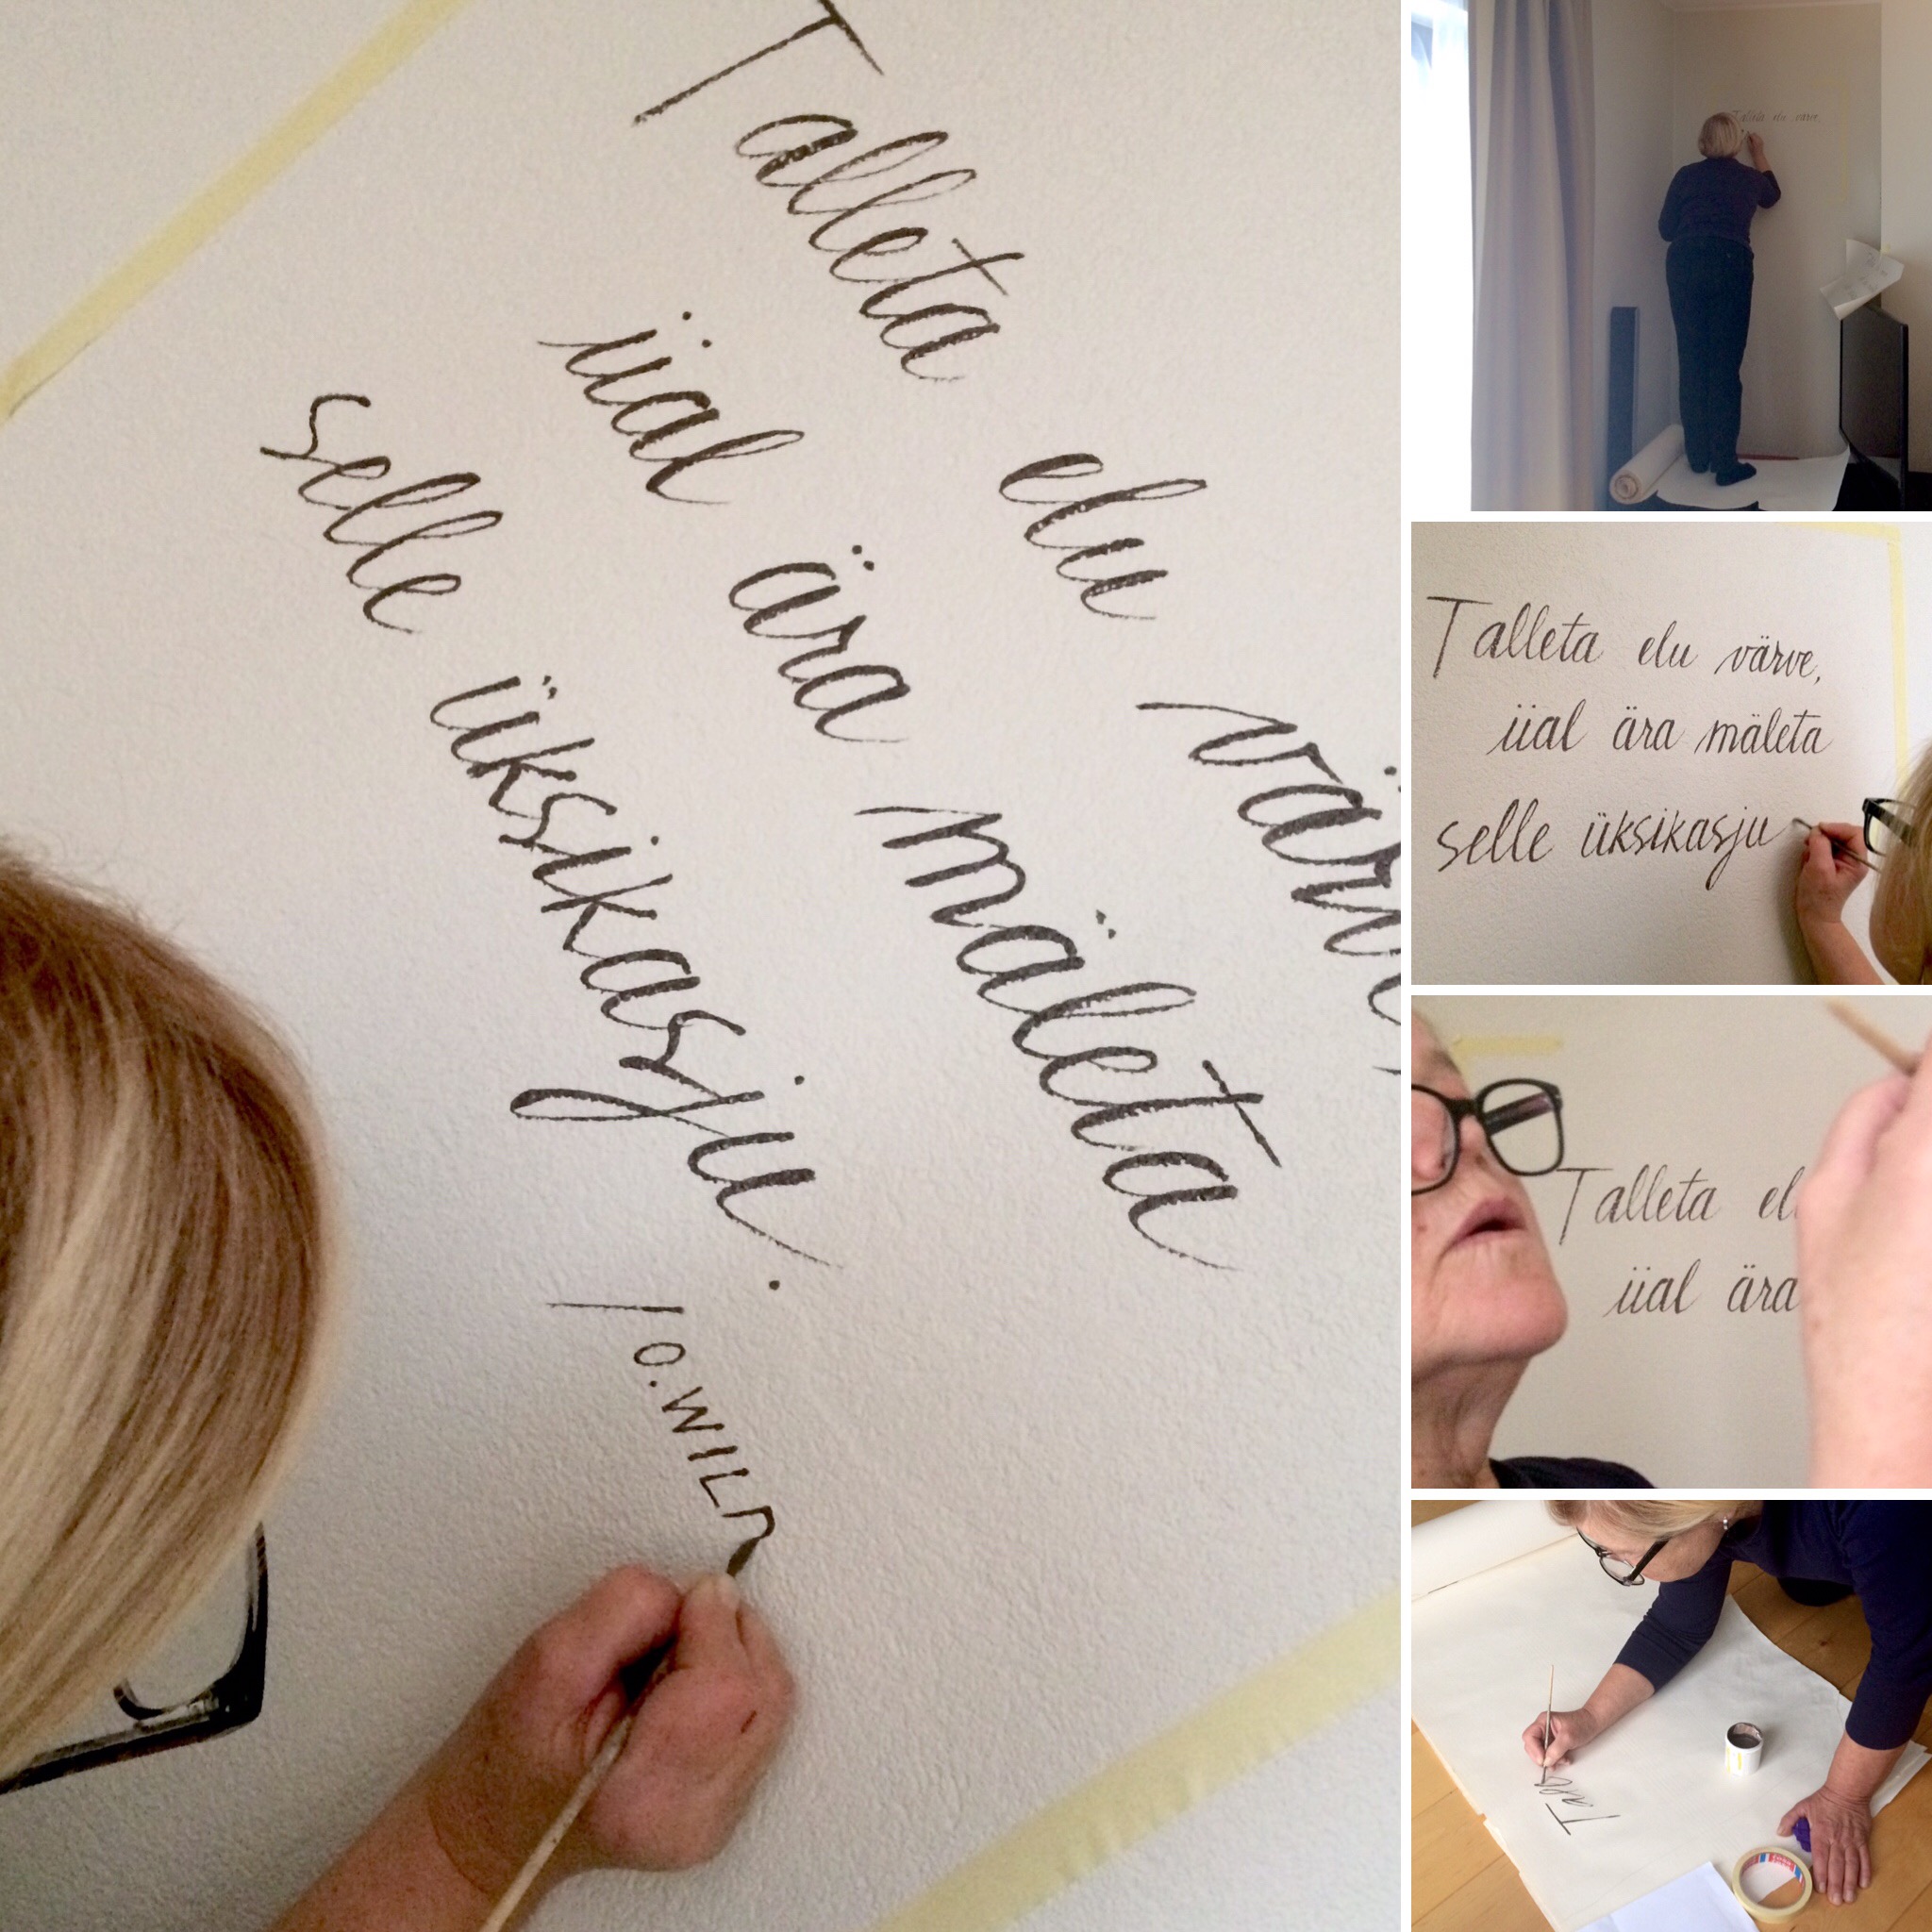 Talleta elu värve,
iial ära mäleta
selle üksikasju.
/O.WILD
Talleta elu värve,
Talleta elu värve,
iial ära mäleta
selle üksikasju
Talleta el
iial ära
Tall